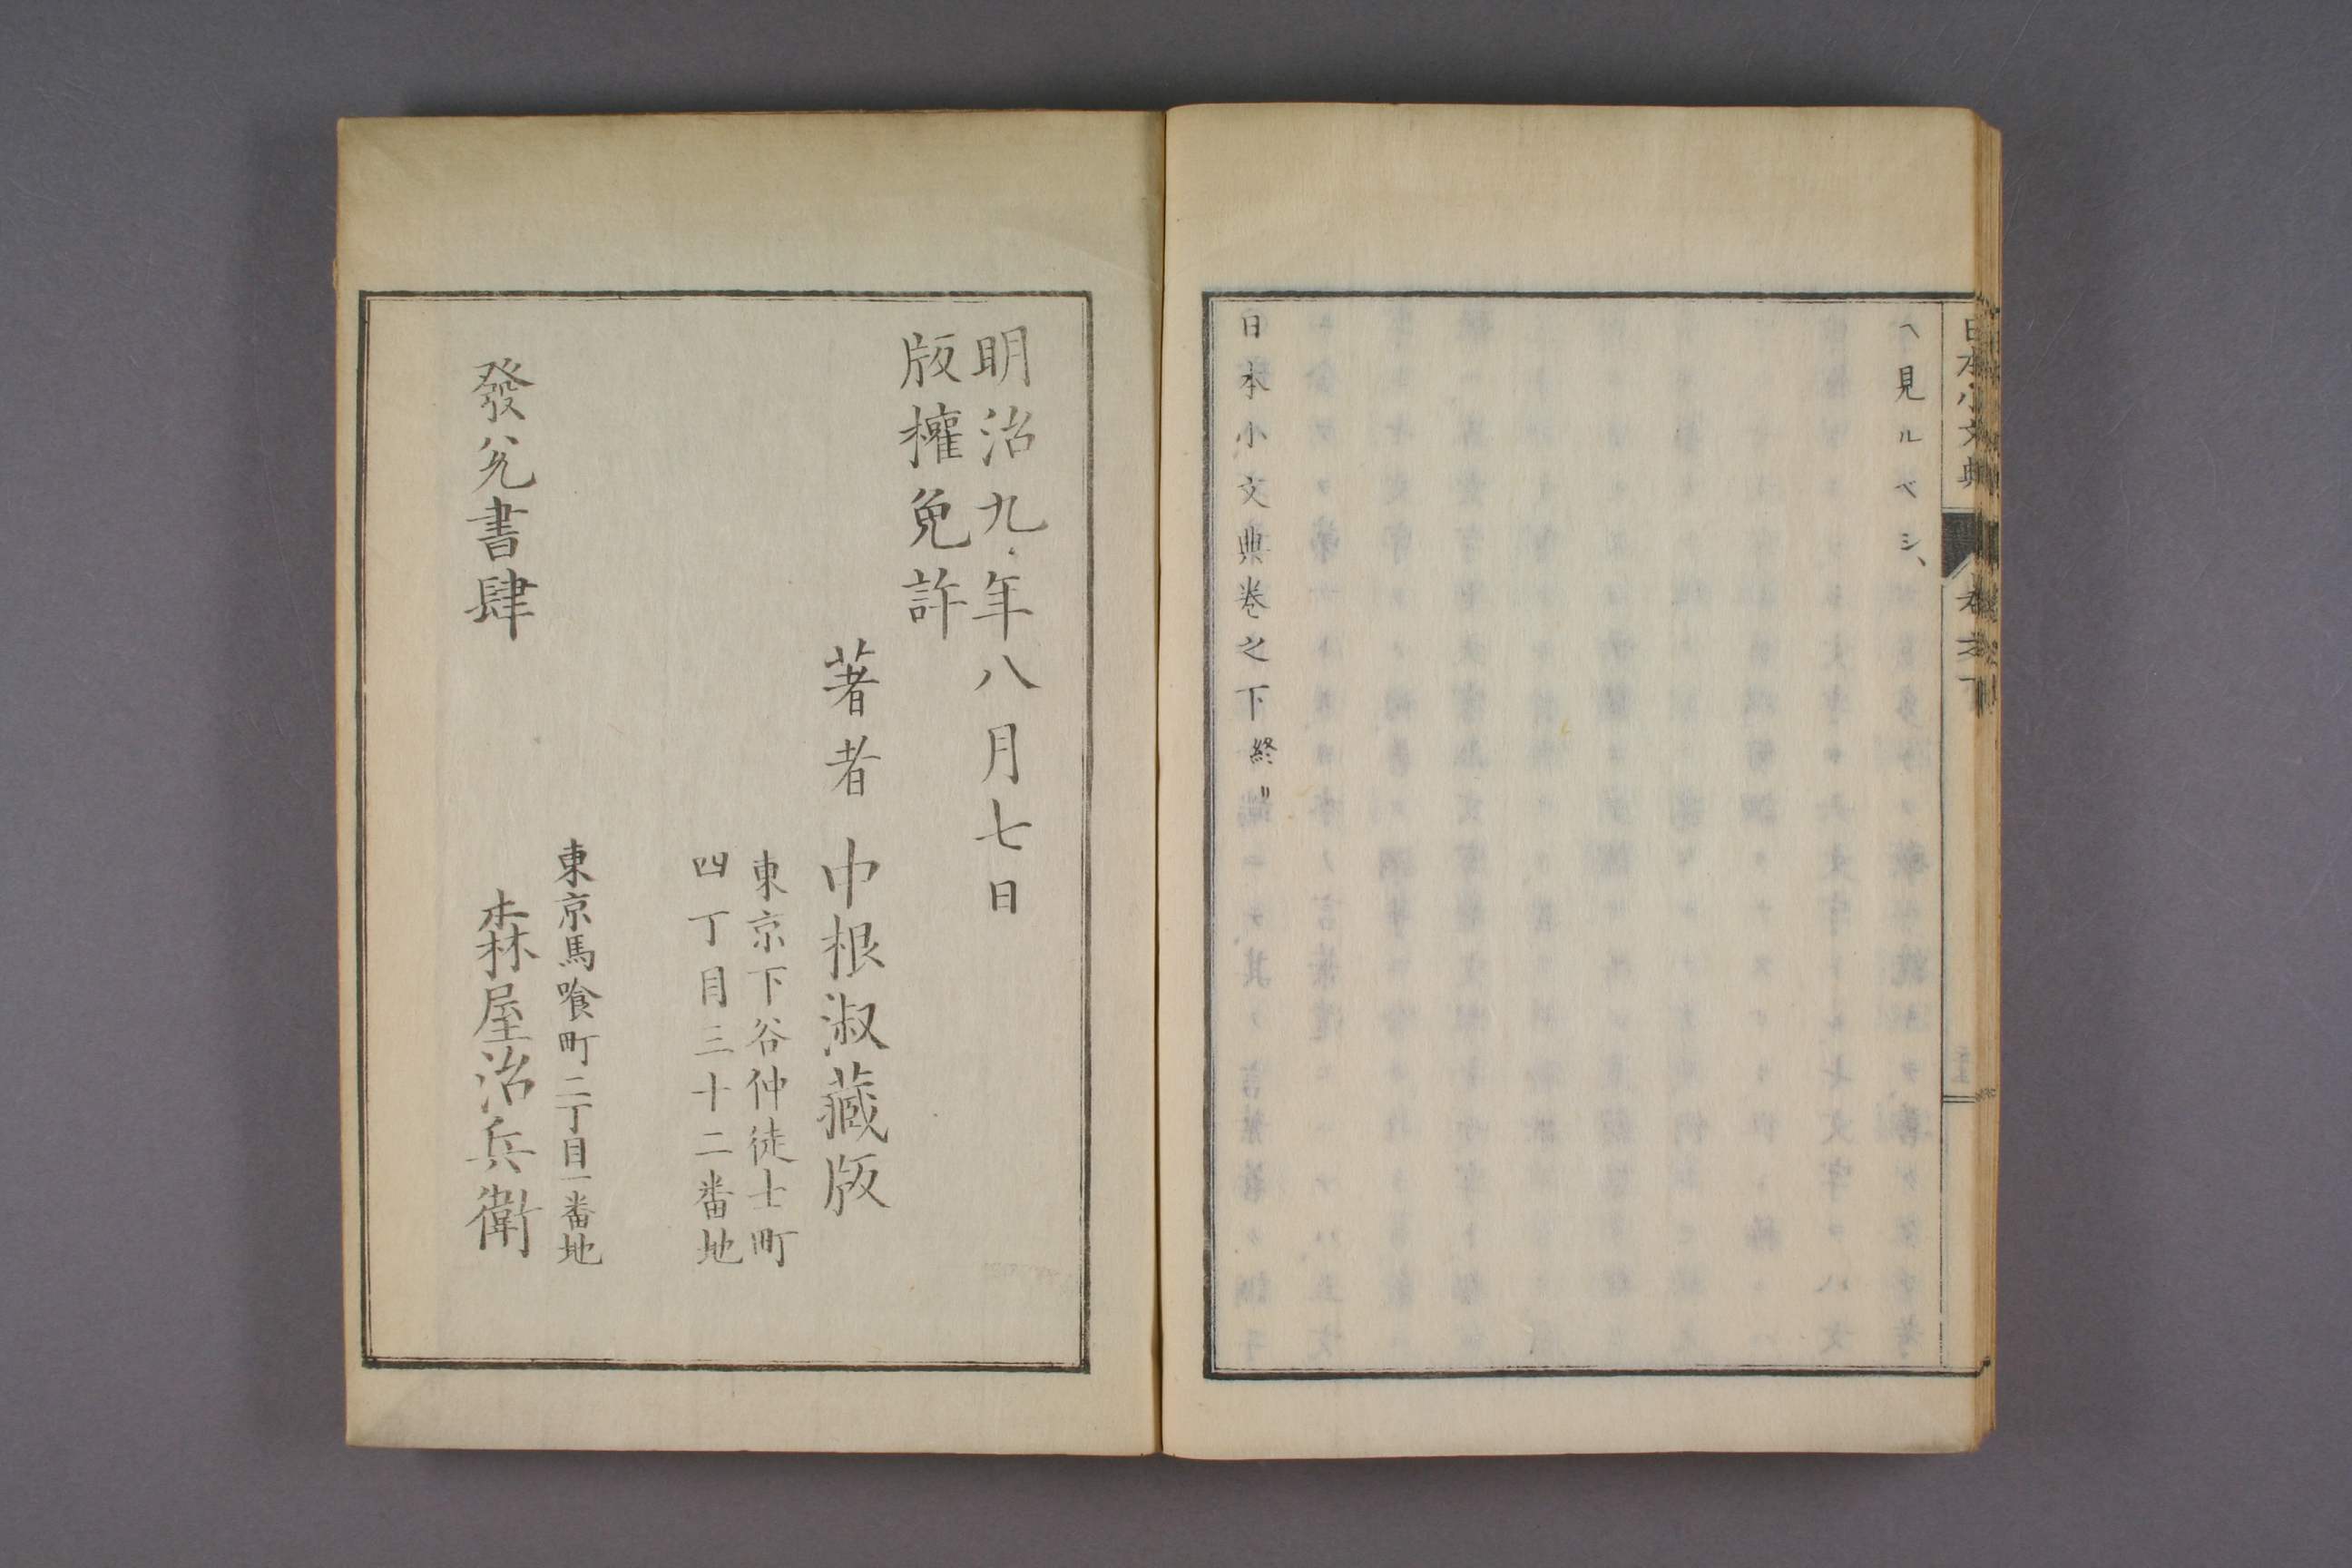 日本小文典
卷之下
ヘ見ルベシ、
日本小文典卷之下終〃
明治九年八月七日
版權免許
著者 中根淑藏版
東京下谷仲徒士町
四丁目三十二番地
東京馬喰町二丁目一番地
發兌書肆 森屋治兵衛